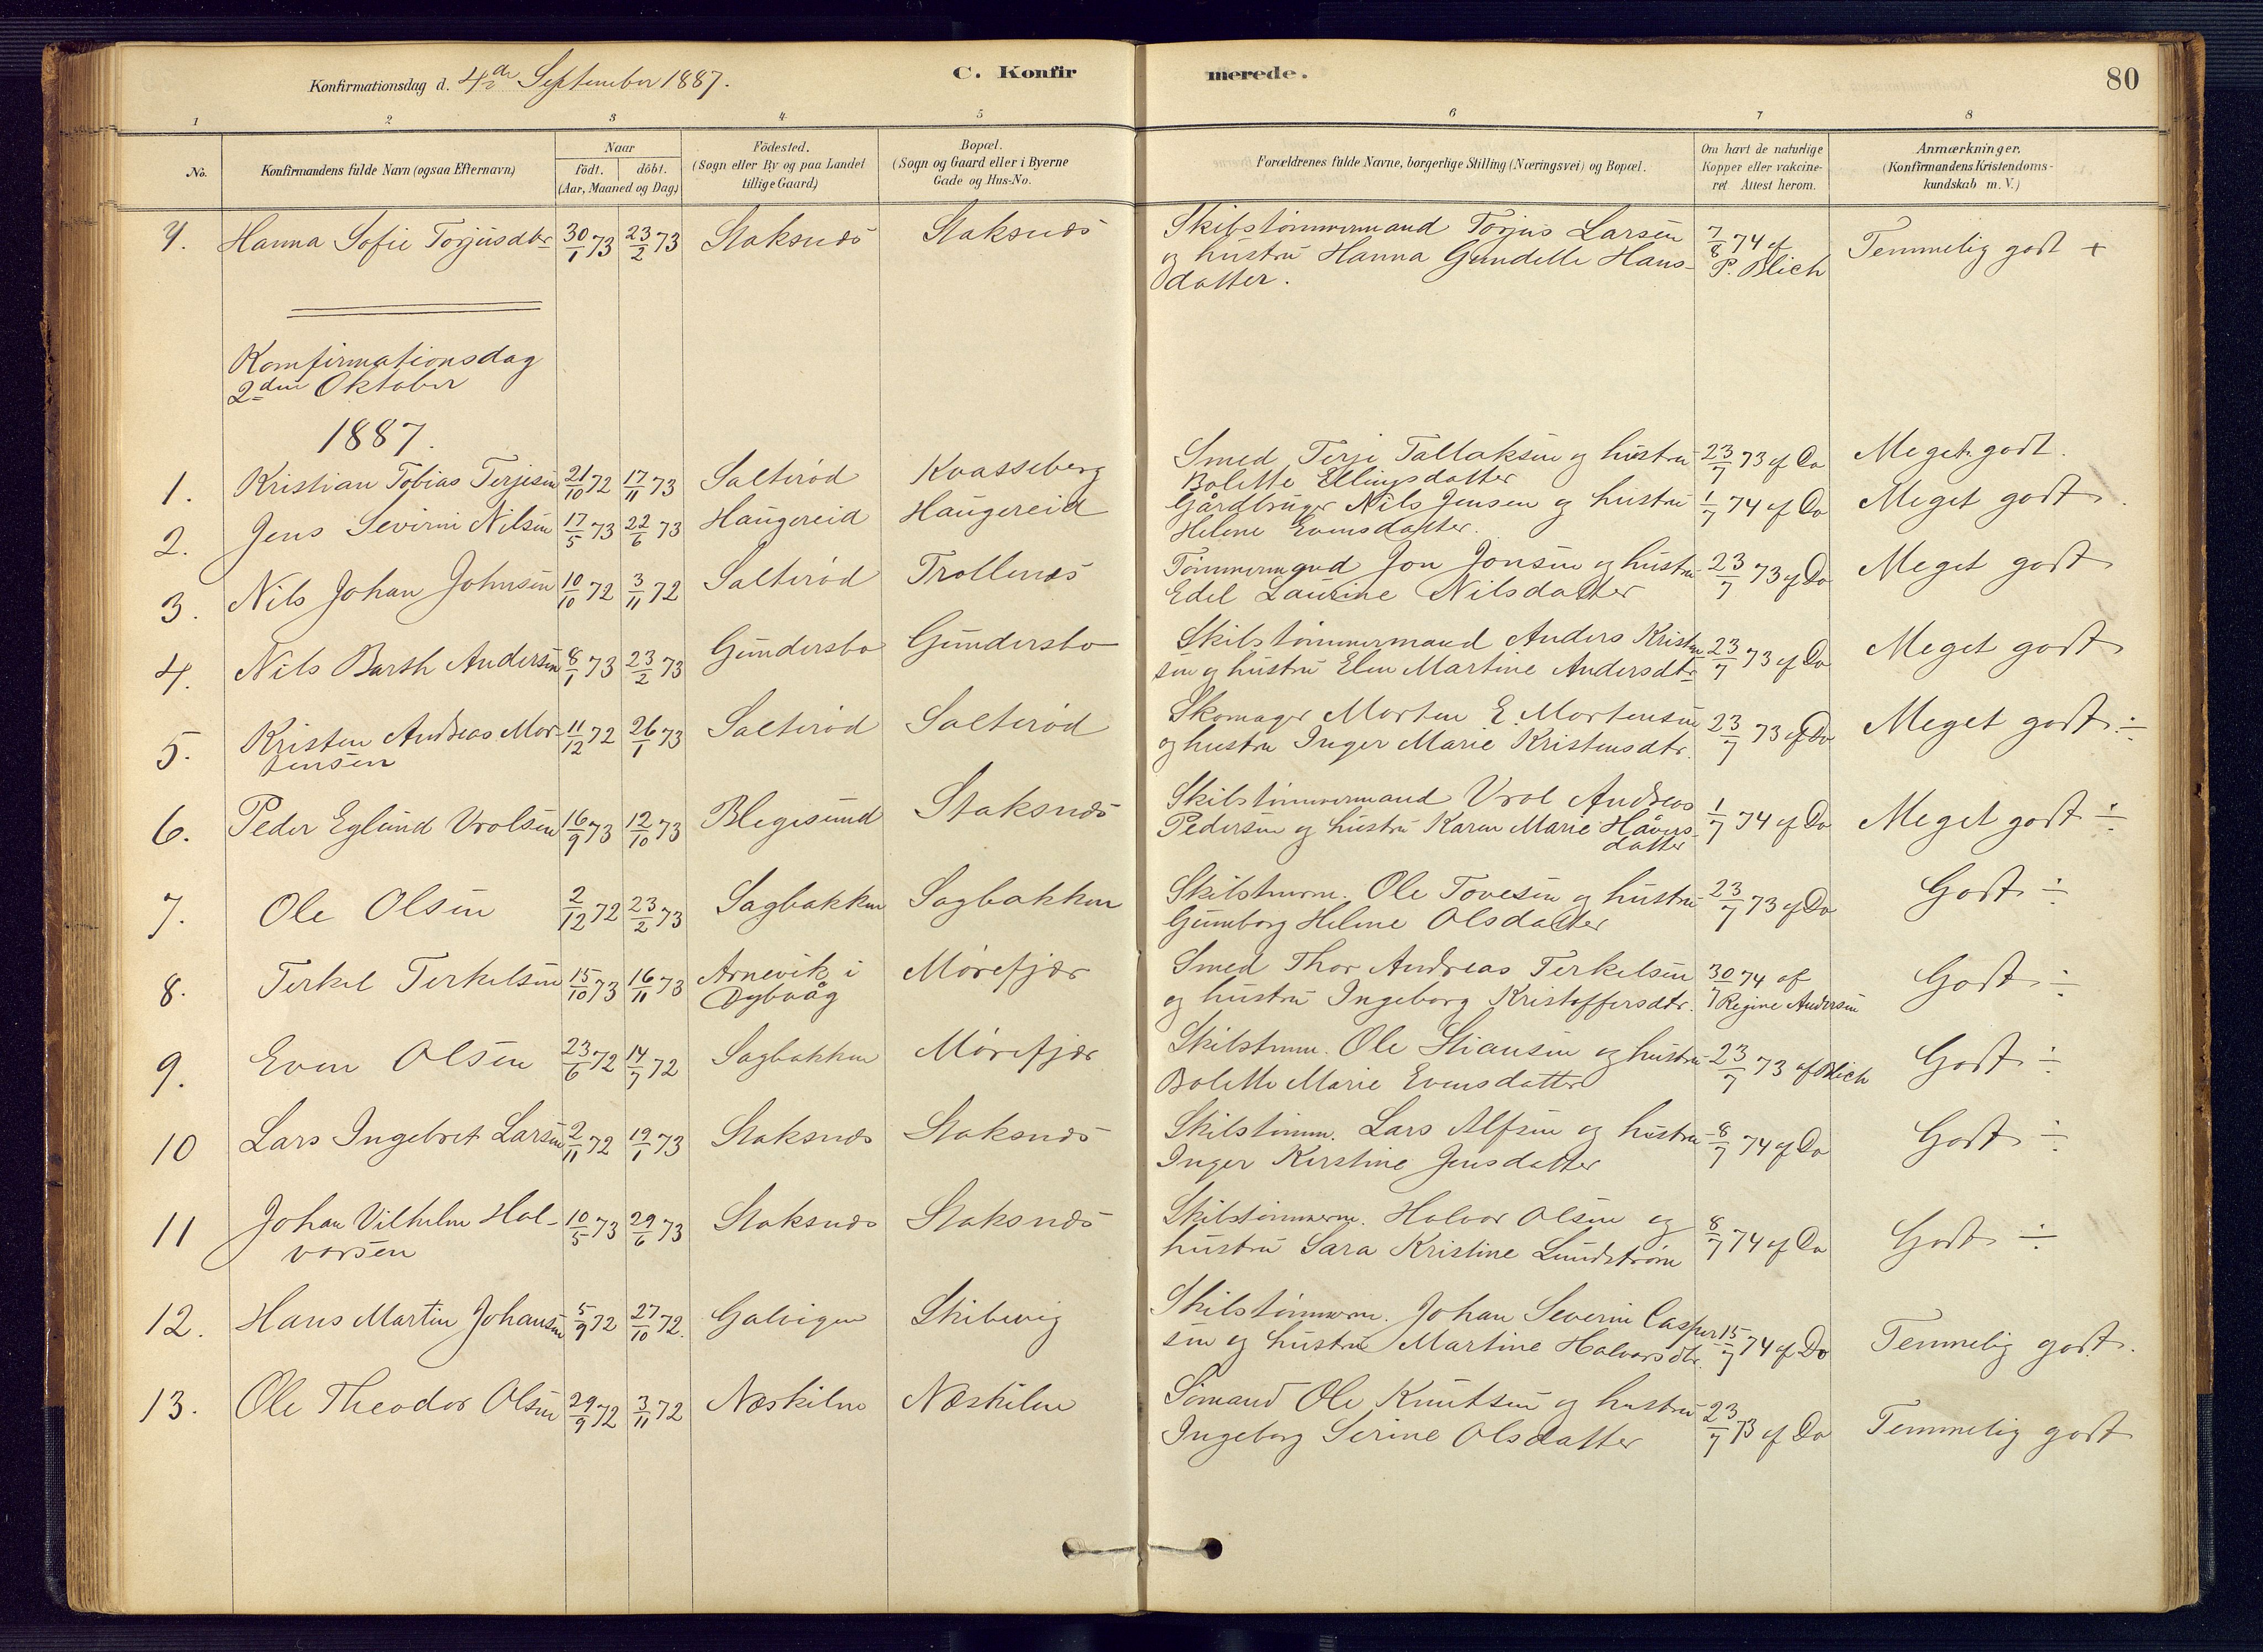 Konfirmationsdag d. 4de September 1887.
C. Konfir merede.
80
1 2 3 4 5 6 7 8
No. Konfirmandens fulde Navn (ogsaa Efternavn) Naar födt. döbt. (Aar, Maaned og Dag) Födested. (Sogn eller By og paa Landet tillige Gaard) Bopæl. (Sogn og Gaard eller i Byerne Gade og Hus-No. Forældrenes fulde Navne, borgerlige Stilling (Næringsvei) og Bopæl. Om havt de naturlige Kopper eller vakcineret Attest herom. Anmærkninger. (Konfirmandens Kristendomskundskab m. V.)
Hanna Sofie Torjusdtr 30/1 73 23/2 73 Staksnæs Staksnæs Skibstømmermand Torjus Larsen 7/8 74 af Temmelig godt +
og hustru Hanna Gundelle Hans- P. Blich
datter.
Komfirmationsdag
2den Oktober
1887.
1. Kristian Tobias Terjesen 21/10 72 17/11 73 Salterød Kvasseberg Smed Terje Tallaksen og hustru 23/7 73 af Do Meget godt.
Bolette Ellingsdatter
2. Jens Severin Nilsen 17/5 73 22/6 73 Haugereid Haugereid Gårdbruger Nils Jensen og hustru 1/7 74 af Do Meget godt.
Helene Evensdatter.
3. Nils Johan Johnsen 10/10 72 3/11 72 Salterød Trollenæs Tømmermand Jon Jonsen og hustru 23/7 73 af Do Meget godt
Edel Laurine Nilsdatter
4. Nils Barth Andersen 8/1 73 23/2 73 Gundersbo Gundersbo Skibstømmermand Anders Kristen 23/7 73 af Do Meget godt
sen og hustru Elen Martine Andersdtr
5. Kristen Andreas Mor- 11/12 72 26/1 73 Salterød Salterød Skomager Morten E. Mortensen 23/7 73 af Do Meget godt ÷
tensen og hustru Inger Marie Kristensdtr.
6. Peder Eglund Vrolsen 16/9 73 12/10 73 Blegesund Staksnæs Skibstømmermand Vrol Andreas 1/7 74 af Do Meget godt ÷
Pedersen og hustru Karen Marie Håvers-
datter
7. Ole Olsen 2/12 72 23/2 73 Sagbakken Sagbakken Skibstmrm. Ole Tovesen og hustru 23/7 73 af Do Godt ÷
Gunborg Helene Olsdatter
8. Terkel Terkelsen 15/10 73 16/11 73 Arnevik i Mørefjær Smed Thor Andreas Terkelsen 30/7 74 af Godt ÷
Dybvåg og hustru Ingeborg Kristoffersdtr. Regine Andersen
9. Even Olsen 23/6 72 14/7 72 Sagbakken Mørefjær Skibstmm. Ole Stiansen og hustru 23/7 73 af Blich Godt ÷
Bolette Marie Evensdatter
10 Lars Ingebret Larsen 2/11 72 19/1 73 Staksnæs Staksnæs Skibstømm. Lars Alfsen og hustru 8/7 74 af Do Godt ÷
Inger Kirstine Jensdatter
11 Johan Vilhelm Hal- 10/5 73 29/6 73 Staksnæs Staksnæs Skibstømmerm. Halvor Olsen og 8/7 74 af Do Godt ÷
vorsen hustru Sara Kristine Lundstrøm
12. Hans Martin Johansen 5/9 72 27/10 72. Galvigen Skibevig Skibstømmerm. Johan Severin Casper 15/7 74 af Do Temmelig godt.
sen og hustru Martine Halvorsdtr.
13. Ole Theodor Olsen 29/9 72 3/11 72 Næskilen Næskilen Sømand Ole Knutsen og hustru 23/7 73 af Do Temmelig godt
Ingeborg Serine Olsdatter